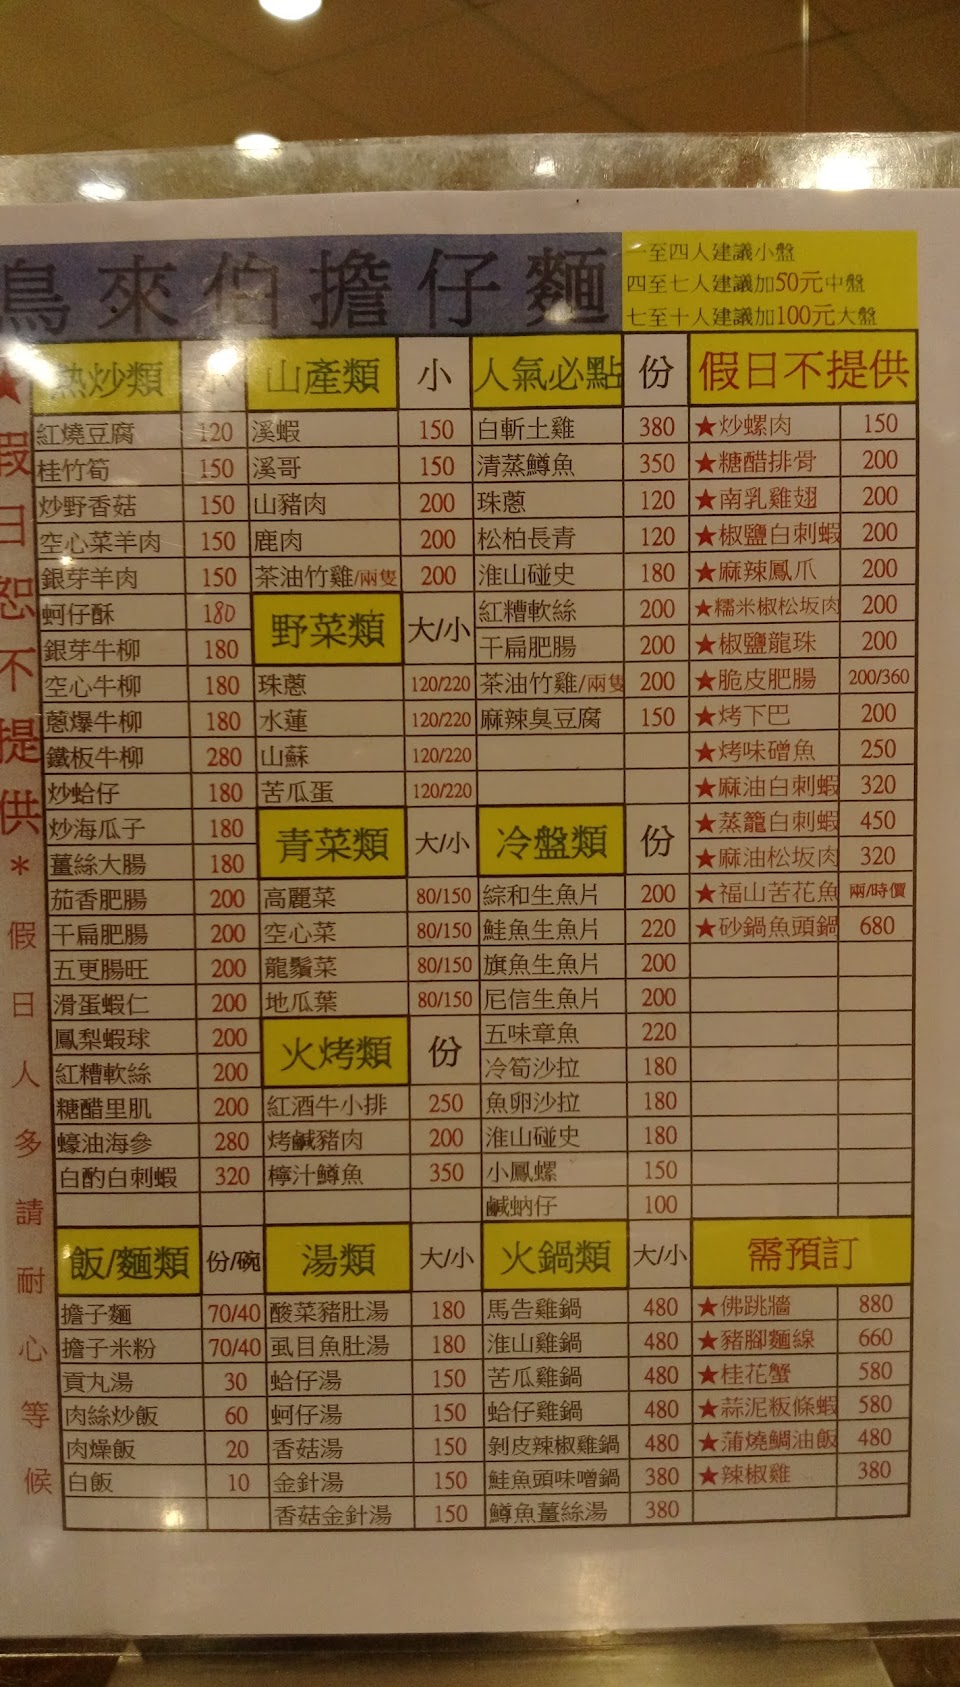 烏來伯擔仔麵
一至四人建議小盤
四至七人建議加50元中盤
七至十人建議加100元大盤
★假日恕不提供*假日人多請耐心等候
熱炒類 小
紅燒豆腐 120
桂竹筍 150
炒野香菇 150
空心菜羊肉 150
銀芽羊肉 150
蚵仔酥 180
銀芽牛柳 180
空心牛柳 180
蔥爆牛柳 180
鐵板牛柳 280
炒蛤仔 180
炒海瓜子 180
薑絲大腸 180
茄香肥腸 200
干扁肥腸 200
五更腸旺 200
滑蛋蝦仁 200
鳳梨蝦球 200
紅糟軟絲 200
糖醋里肌 200
蠔油海參 280
白酌白刺蝦 320
山產類 小
溪蝦 150
溪哥 150
山豬肉 200
鹿肉 200
茶油竹雞/兩隻 200
野菜類 大/小
珠蔥 120/220
水蓮 120/220
山蘇 120/220
苦瓜蛋 120/220
青菜類 大/小
高麗菜 80/150
空心菜 80/150
龍鬚菜 80/150
地瓜葉 80/150
火烤類 份
紅酒牛小排 250
烤鹹豬肉 200
檸汁鱒魚 350
人氣必點 份
白斬土雞 380
清蒸鱒魚 350
珠蔥 120
松柏長青 120
淮山碰史 180
紅糟軟絲 200
干扁肥腸 200
茶油竹雞/兩隻 200
麻辣臭豆腐 150
冷盤類 份
綜和生魚片 200
鮭魚生魚片 220
旗魚生魚片 200
尼信生魚片 200
五味章魚 220
冷筍沙拉 180
魚卵沙拉 180
淮山碰史 180
小鳳螺 150
鹹蚋仔 100
假日不提供
★炒螺肉 150
★糖醋排骨 200
★南乳雞翅 200
★椒鹽白刺蝦 200
★麻辣鳳爪 200
★糯米椒松坂肉 200
★椒鹽龍珠 200
★脆皮肥腸 200/360
★烤下巴 200
★烤味磳魚 250
★麻油白刺蝦 320
★蒸籠白刺蝦 450
★麻油松坂肉 320
★福山苦花魚 兩/時價
★砂鍋魚頭鍋 680
飯/麵類 份/碗
擔子麵 70/40
擔子米粉 70/40
貢丸湯 30
肉絲炒飯 60
肉燥飯 20
白飯 10
湯類 大/小
酸菜豬肚湯 180
虱目魚肚湯 180
蛤仔湯 150
蚵仔湯 150
香菇湯 150
金針湯 150
香菇金針湯 150
火鍋類 大/小
馬告雞鍋 480
淮山雞鍋 480
苦瓜雞鍋 480
蛤仔雞鍋 480
剝皮辣椒雞鍋 480
鮭魚頭味噌鍋 380
鱒魚薑絲湯 380
需預訂
★佛跳牆 880
★豬腳麵線 660
★桂花蟹 580
★蒜泥粄條蝦 580
★蒲燒鯛油飯 480
★辣椒雞 380